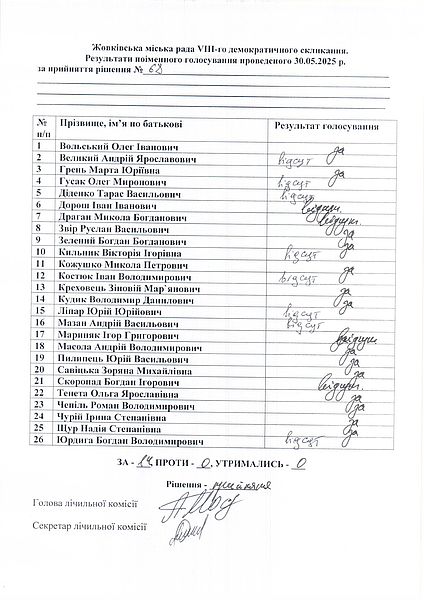 Жовківська міська рада VIII-го демократичного скликання.
Результати поіменного голосування проведеного 30.05.2025 р.
за прийняття рішення № 68
№ п/п Прізвище, ім’я по батькові Результат голосування
1 Вольський Олег Іванович за
2 Великий Андрій Ярославович відсут
3 Грень Марта Юріївна за
4 Гусак Олег Миронович відсут
5 Діденко Тарас Васильович відсут
6 Дорош Іван Іванович
7 Драган Микола Богданович
8 Звір Руслан Васильович за
9 Зелений Богдан Богданович за
10 Кильник Вікторія Ігорівна відсут
11 Кожушко Микола Петрович за
12 Костюк Іван Володимирович відсут
13 Креховець Зіновій Мар`янович за
14 Кудик Володимир Данилович за
15 Ліпар Юрій Юрійович відсут
16 Мазан Андрій Васильович відсут
17 Марцинк Ігор Григорович
18 Масола Андрій Володимирович за
19 Пилипець Юрій Васильович за
20 Савіцька Зоряна Михайлівна за
21 Скоропад Богдан Ігорович
22 Тенета Ольга Ярославівна за
23 Чепіль Роман Володимирович за
24 Чурій Ірина Степанівна за
25 Щур Надія Степанівна за
26 Юрдига Богдан Володимирович відсут
ЗА - 14 ПРОТИ - 0, УТРИМАЛИСЬ - 0
Рішення - прийняте
Голова лічильної комісії
Секретар лічильної комісії